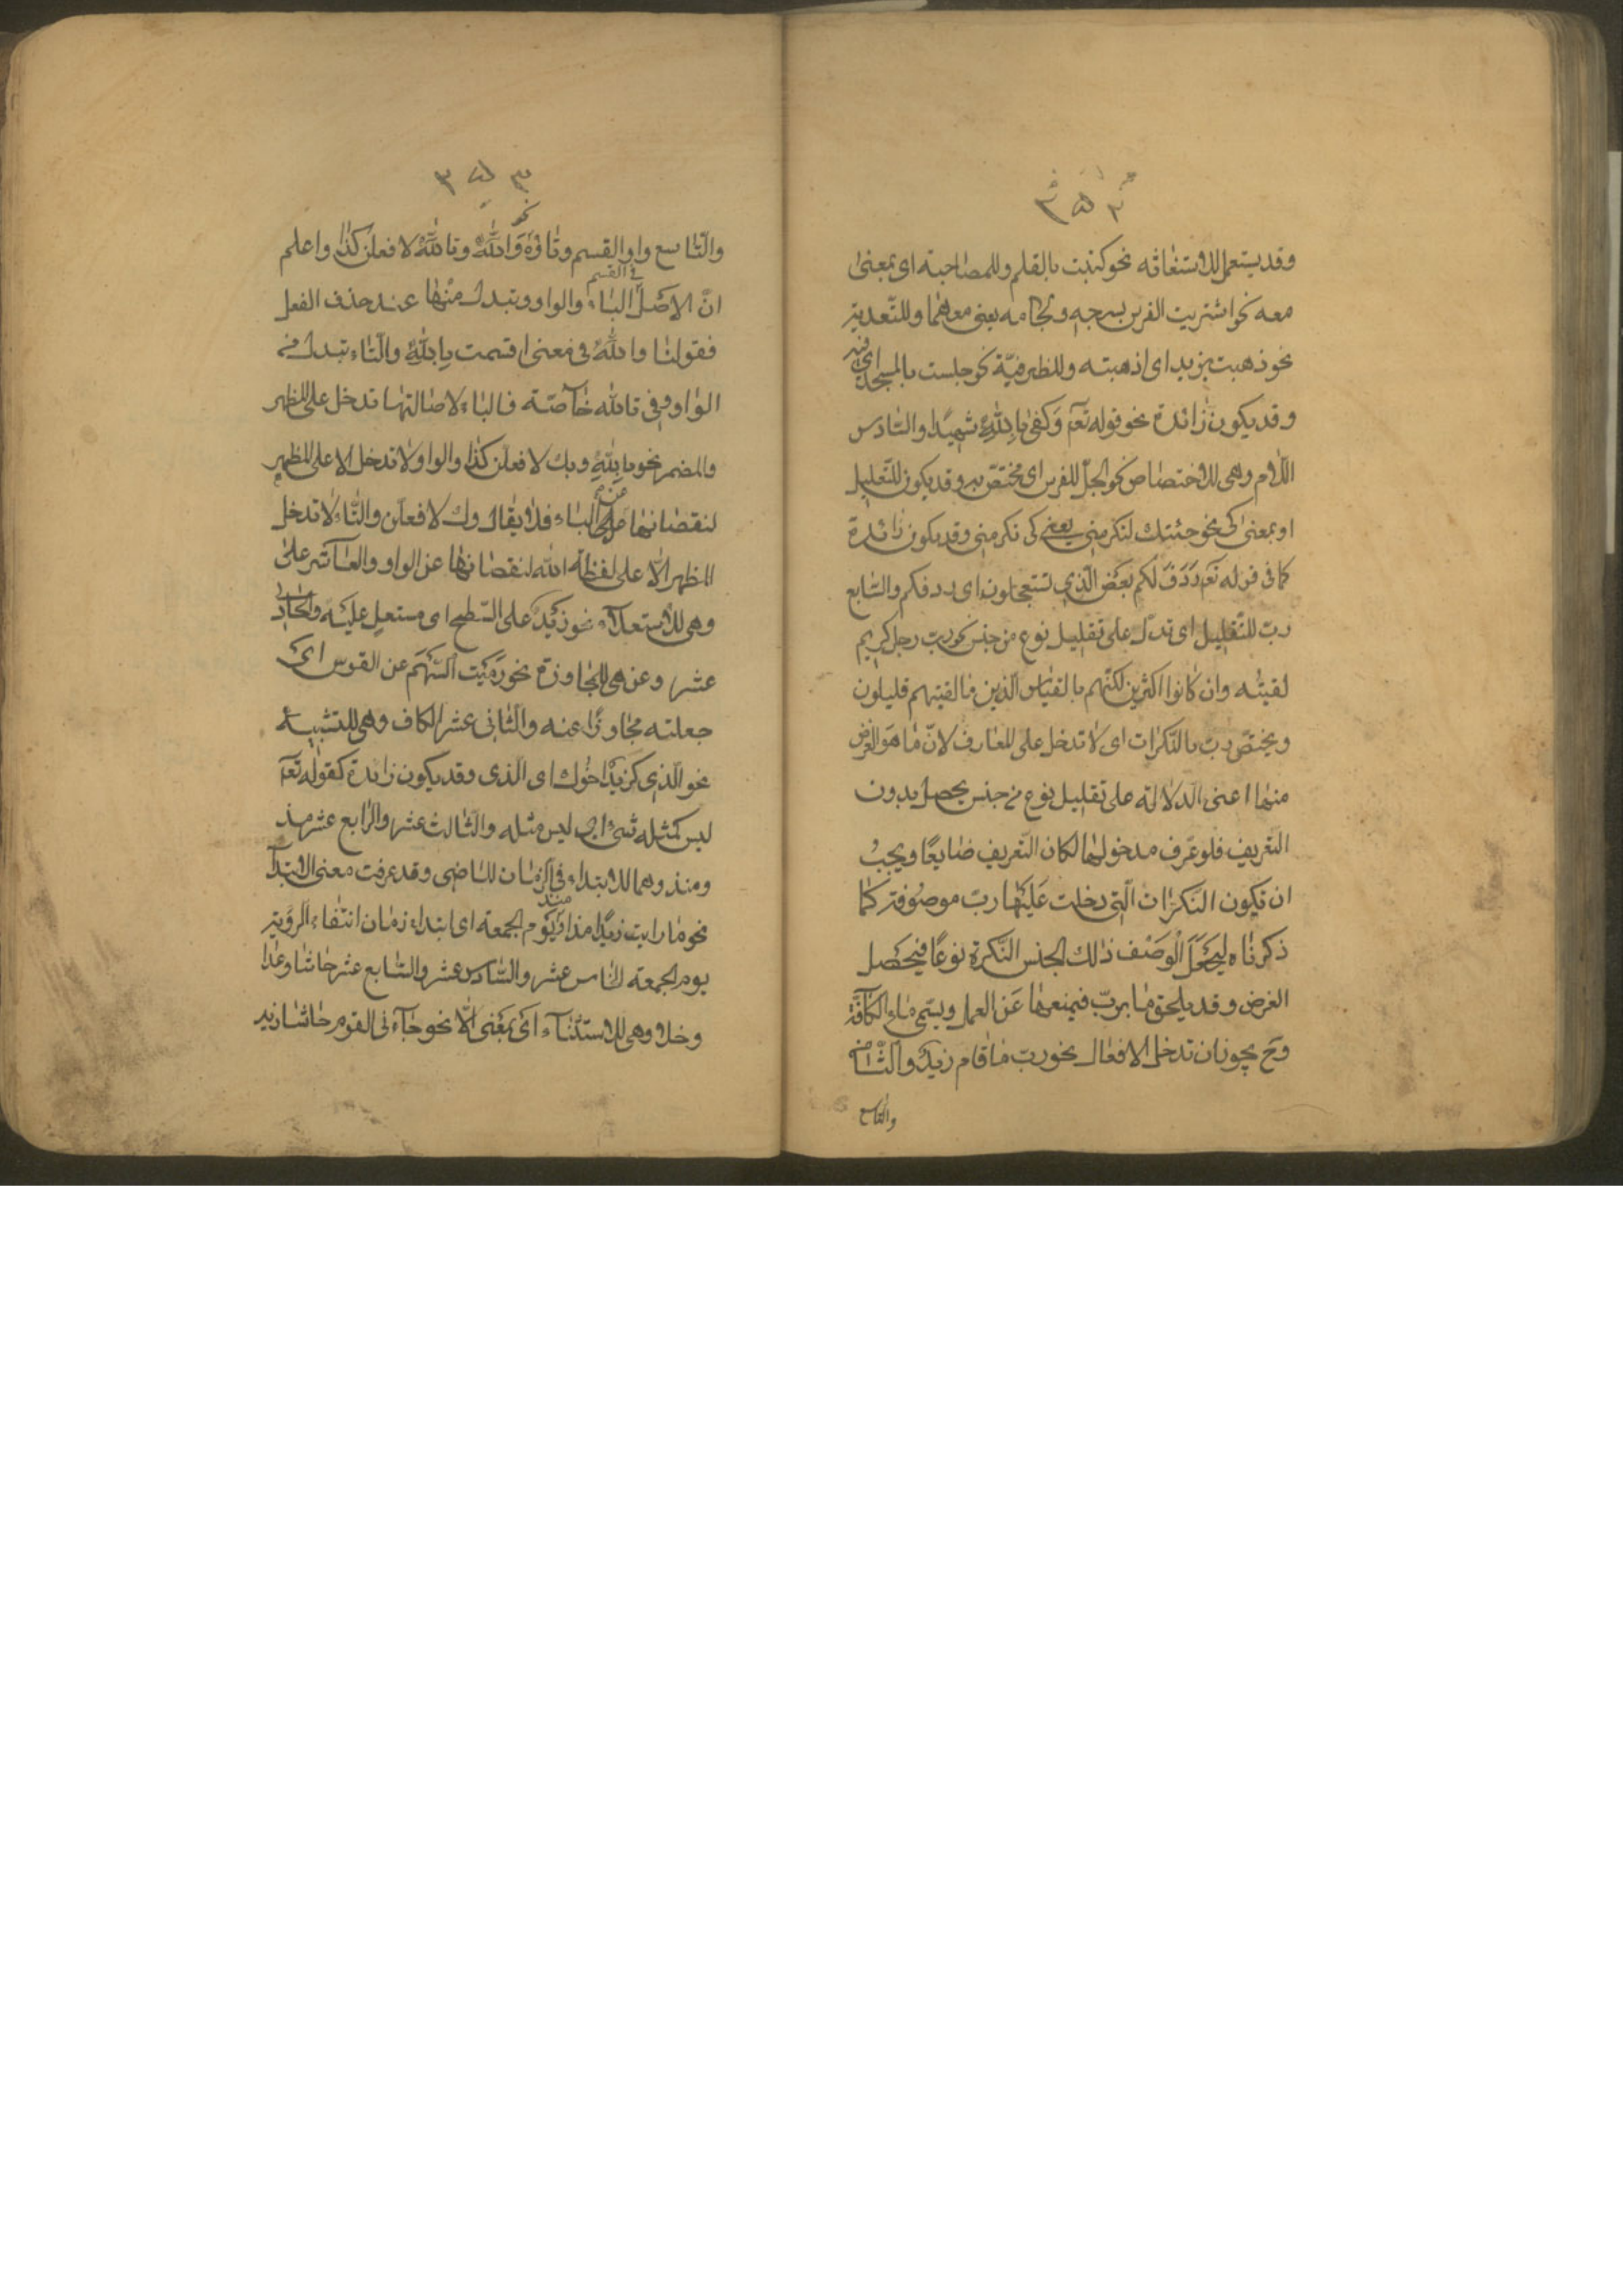 وقد يستعمل للاستغاثه نحو كتبت بالقلم وللمصاحبة اى بمعنى
معه نحو اشتريت الفرس بسرجه ولجامه يعنى معهما وللتعدية
نحو ذهبت بزيد اى اذهبته وللظرفيّة نحو جلست بالمسجد اى فيه
وقد يكون زائدة نحو قوله تعم وَكفىٰ بِاللّٰهِ شهيدًا والسّادس
اللّام وهى للاختصاص نحو الجلّ للفرس اى مختصّ به وقد يكون للتّعليل
او بمعنى كى نحو جئتك لتكرمنى يعنى كى تكرمنى وقد يكون زائدة
كما فى قوله تعم رَدَفَ لَكم بَعْض الّذى تستعجلون اى ردفكم والسّابع
ربّ للتّقليل اى تدلّ على تقليل نوع من جنس نحو ربّ رجل كريم
لقيتُه وان كانوا اكثرين لكنّهم بالقياس الّذين ما لقيتهم قليلون
ويختصّ ربّ بالنّكرات اى لا تدخل على المعارف لانّ ما هَو الغرض
منها اعنى الدّلالة على تقليل نوع من جنس يحصل بدون
التعريف فلو عُرّف مدخولها لكان التّعريف ضايعًا ويجبُ
ان تكون النّكرات الّتى دخلت عَلَيْها ربّ موصُوفة كما
ذكرناه ليَجْعَلَ الْوَصْف ذلك الجنس النَّكرة نوعًا فيحْصل
الغرض وقد يلحق ما بربّ فيمنعها عَن العمل ويسمّى ماء الكآفّة
وح يجوز ان تدخل الافعال نحو ربّ ما قام زيدٌ والثّامن
والتاسع
والتّاسع واو القسم وتاؤه نحو وَاللّٰهِ وتاللّٰهِ لافعلن كذا واعلم
انّ الاصْل فى القسم الباء والواو وتبدل منْها عند حذف الفعل
فقولنا واللّٰهِ فى معنى اقسمت بِاللّٰهِ والتّاء تبدل من
الواو وفى تاللّٰه خآصّة فالباء لاصالتها تدخل على المظهر
والمضمر نحو باللّٰهِ وبك لافعلن كذا والواو لا تدخل الا على المظهر
لنقصانها عن الباء فلا يقال وك لافعلن والتّاء لا تدخل
المظهر الّا على لفظة اللّٰه لنقصانها عن الواو والعآشر على
وهى للاستعلآء نحو زَيْدٌ على السّطح اى مستعلٍ عليْه والحادى
عشر وعن هى للمجاوزة نحو رَمَيْت السَّهْم عن القوس اى
جعلته مجاوزًا عنه والثّانى عشر الكاف وهى للتشبيه
نحو الّذى كزيدٍ اخُوك اى الّذى وقد يكون زائدة كقوله تعم
ليس كمثله شىء اى ليس مثله والثّالث عشر والرّابع عشر مذ
ومنذ وهما للابتداء فى الزّمان الماضى وقد عرفت معنى الابتداء
نحو ما رايت زيدًا مذ او منذ يَوْم الجمعة اى ابتداء زمان انتفاء الرؤية
يوم الجمعة الخامس عشر والسّادس عشر والسّابع عشر حاشا وعدا
وخلا وهى للاستثنآء اى بمَعْنى الّا نحو جآءنى القوم حاشا زيد